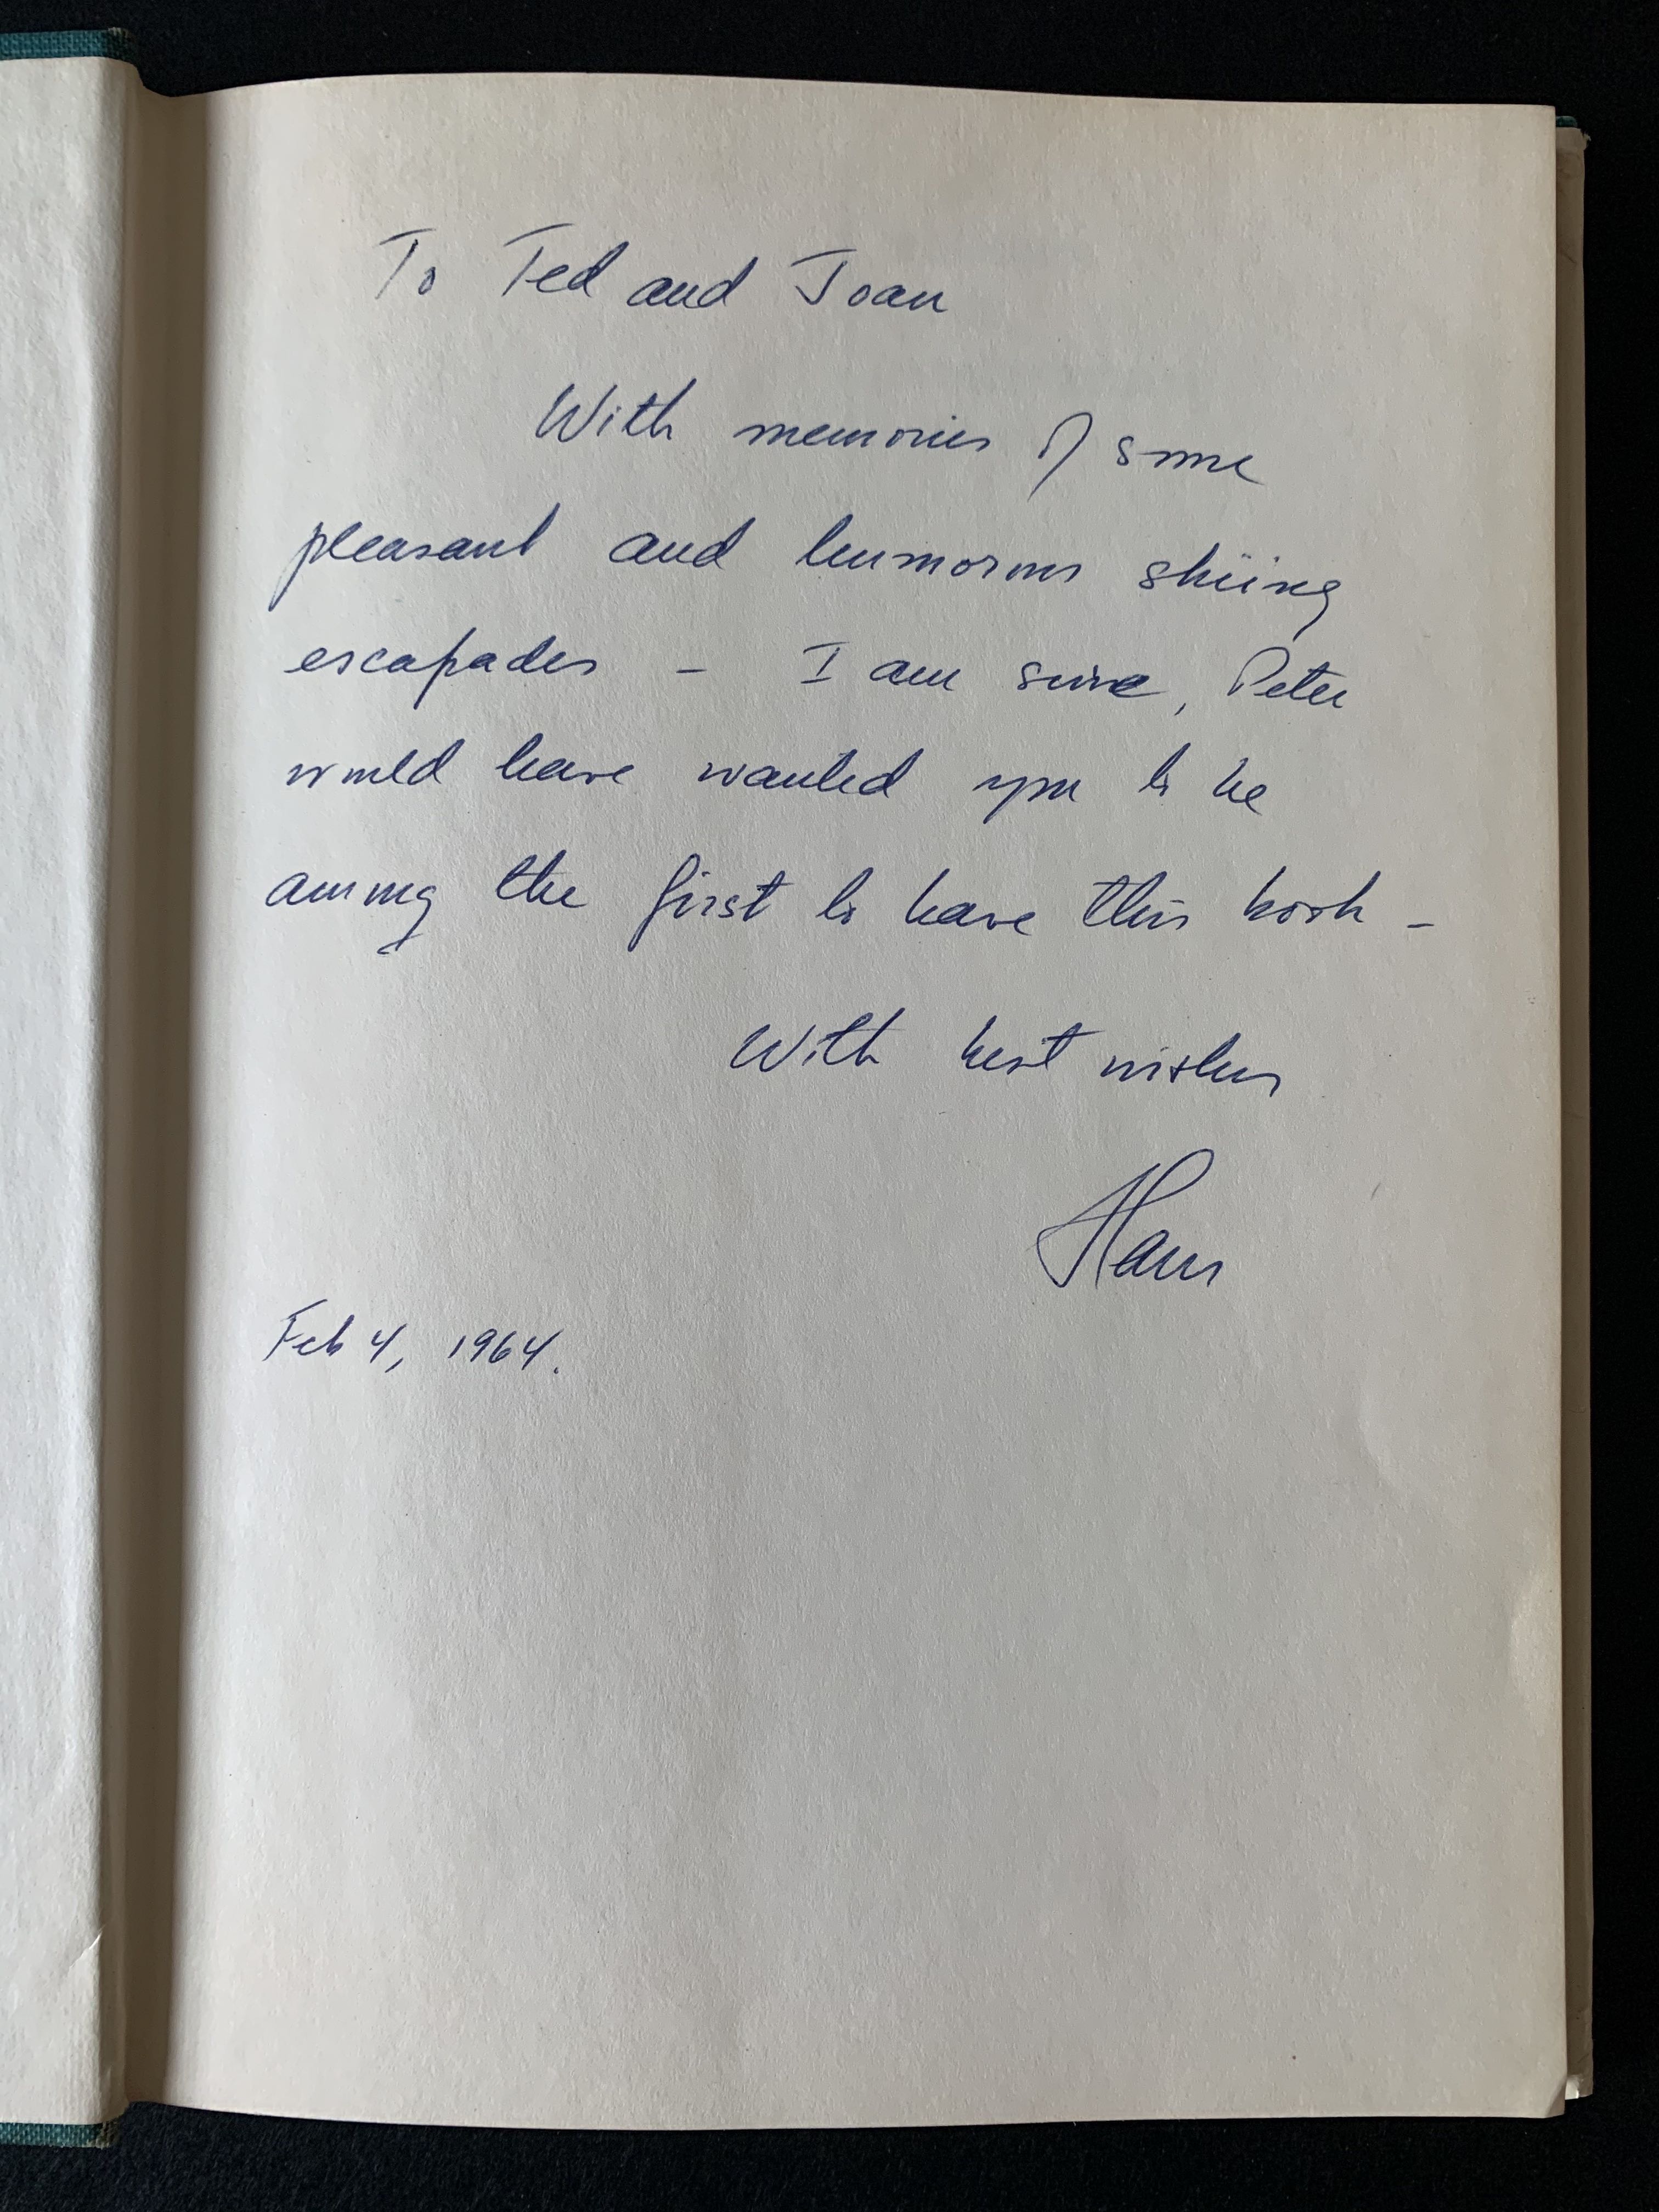 To Ted and Joan
With memories of some
pleasant and humorous skiing
escapades - I am sure, Peter
would have wanted you to be
among the first to have this book -
With best wishes
Hans
Feb 4, 1964.